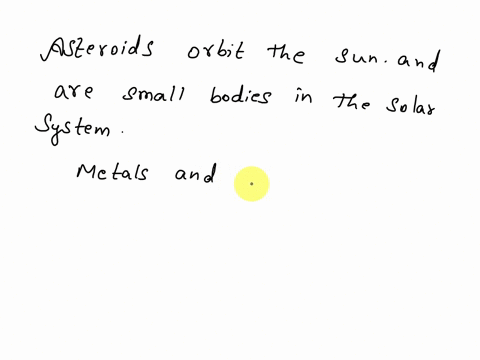 Asteroids orbit the sun. and
are small bodies in the solar
system.
Metals and